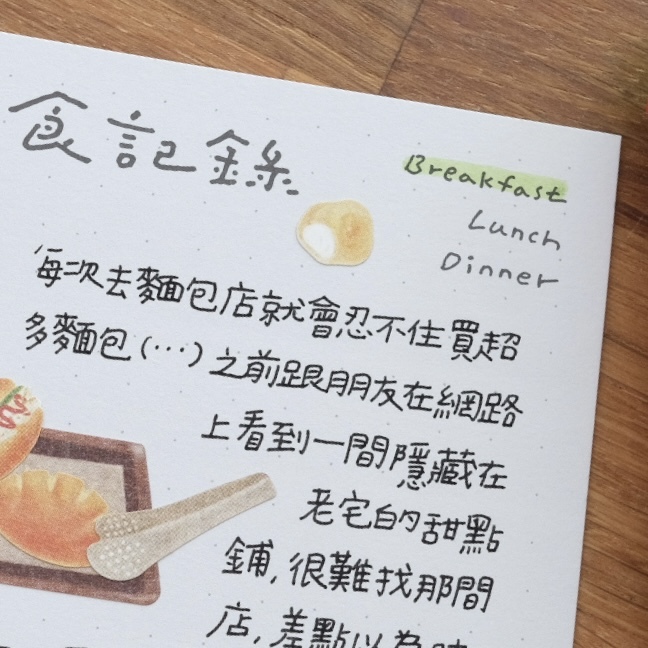 食記錄
Breakfast
Lunch
Dinner
每次去麵包店就會忍不住買超
多麵包(…)之前跟朋友在網路
上看到一間隱藏在
老宅的甜點
鋪,很難找那間
店,差點以為